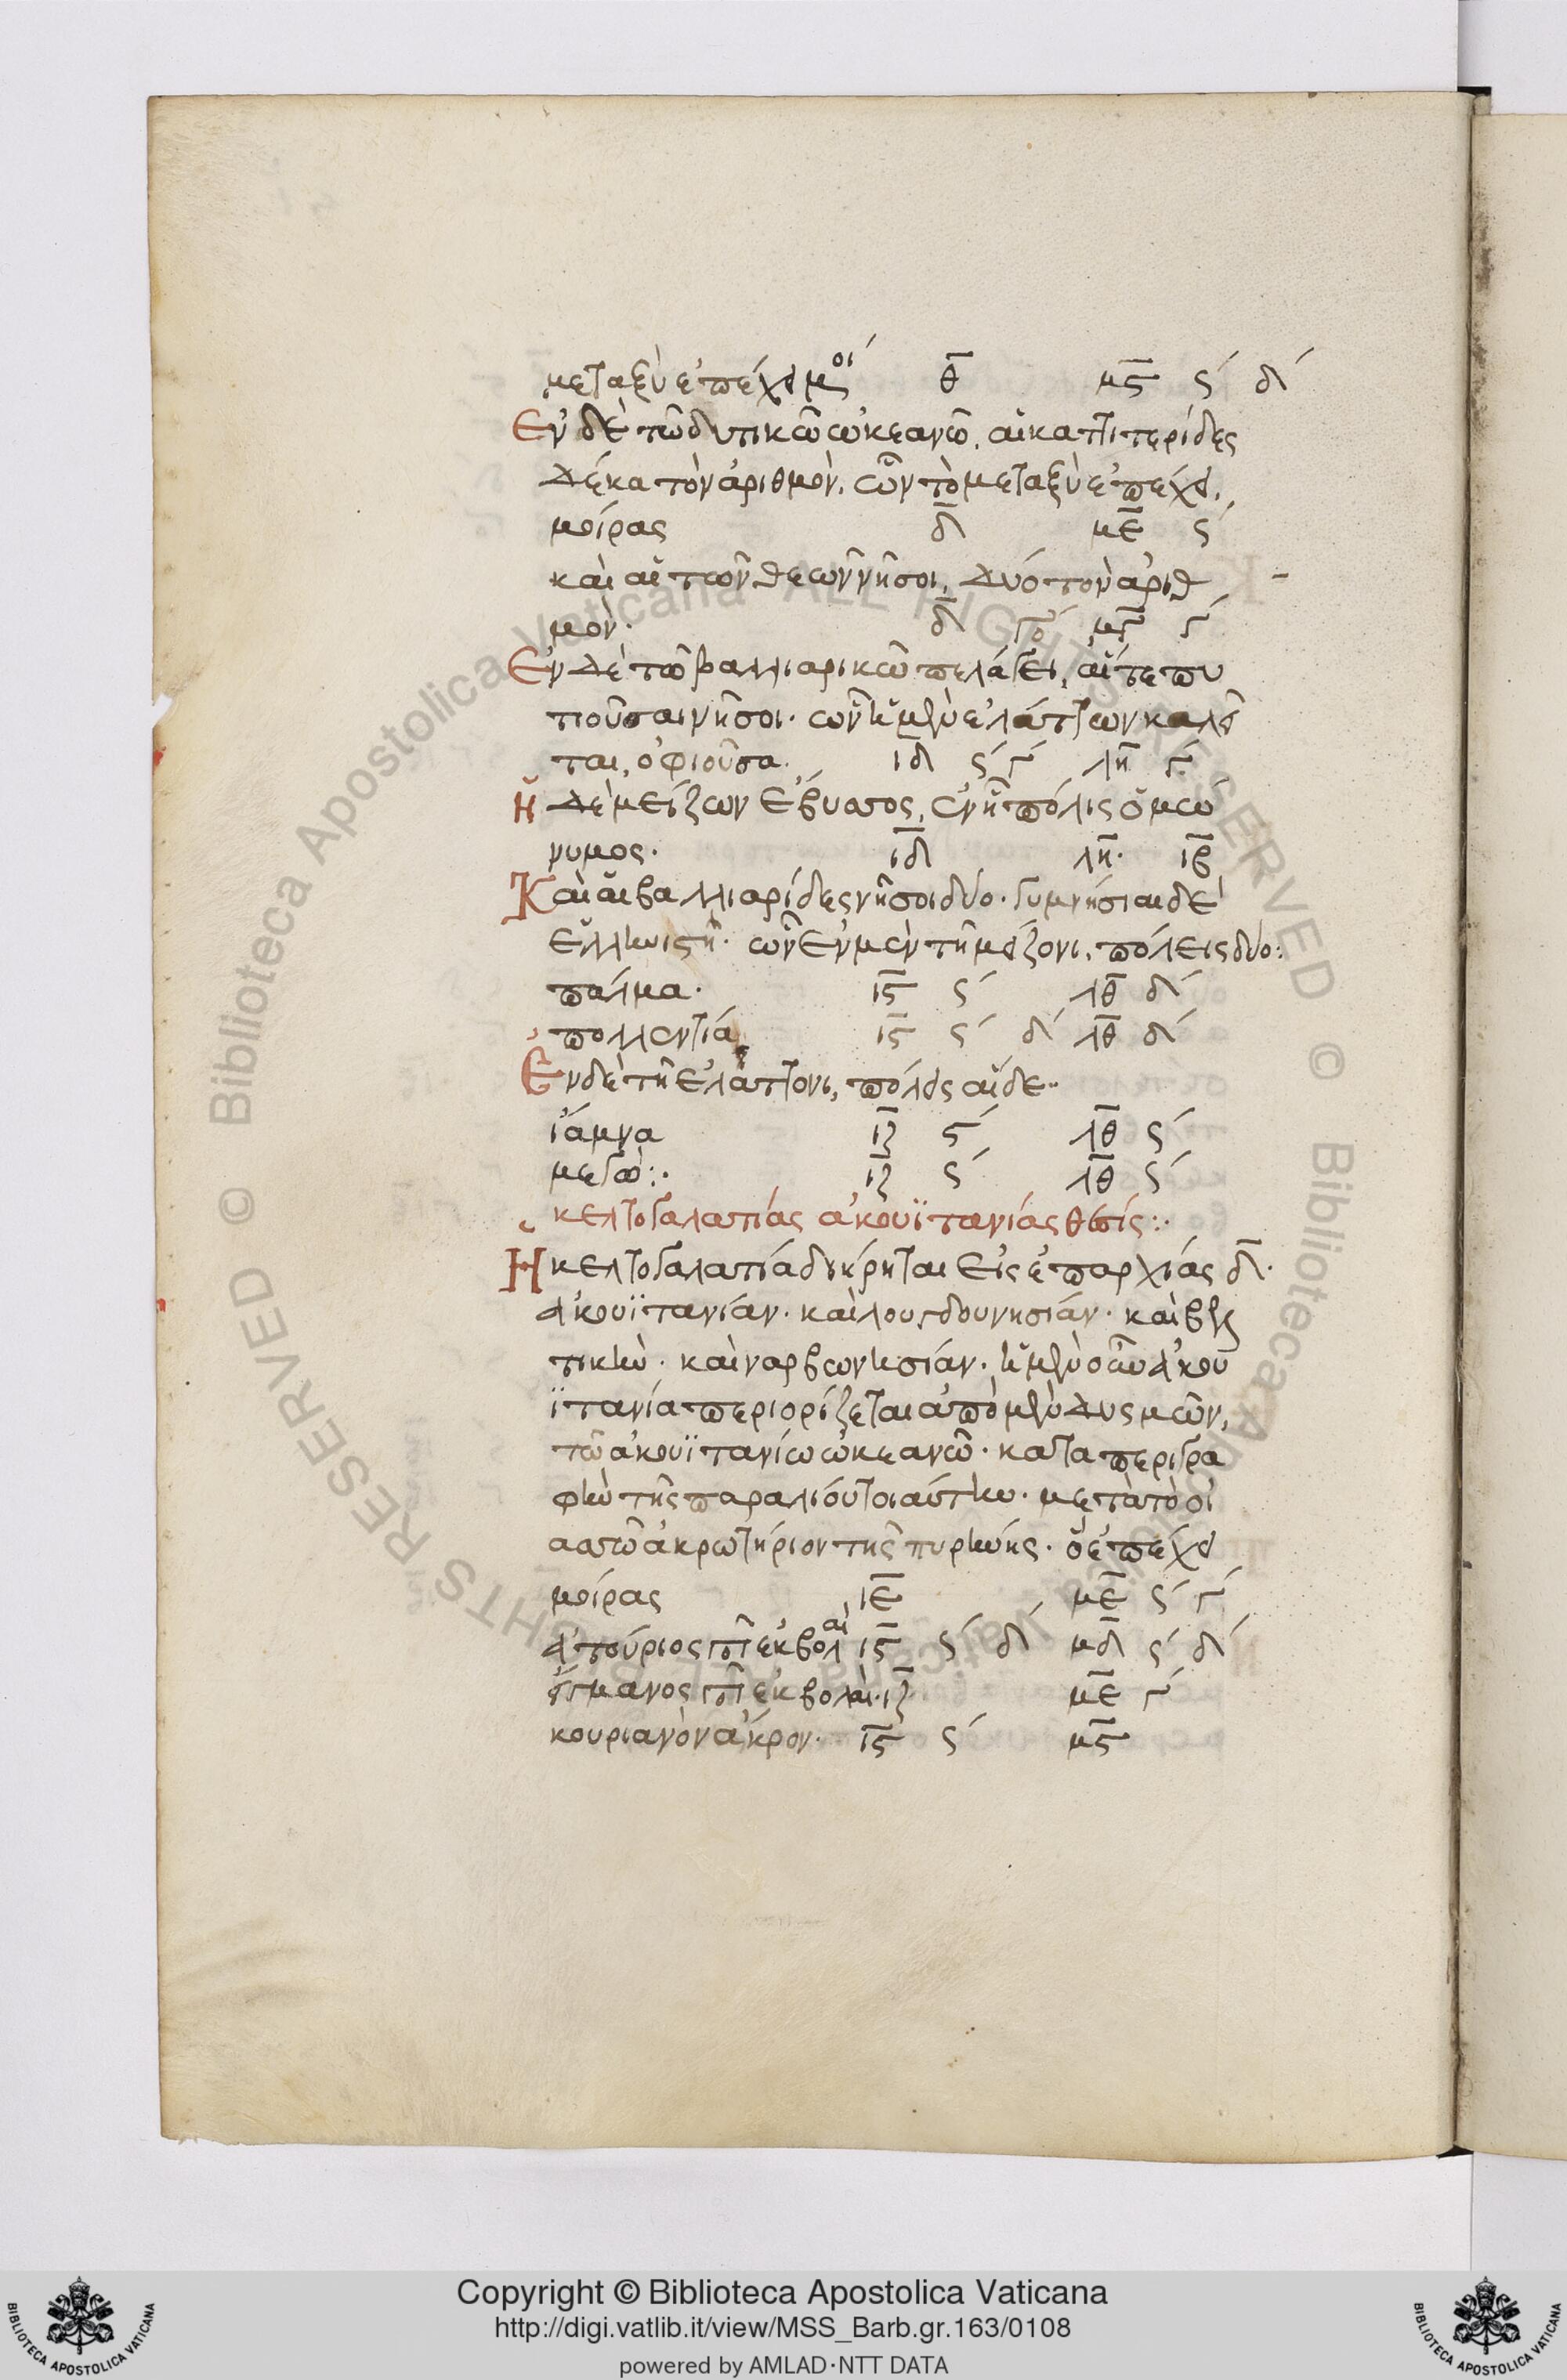 μεταξὺ ἐπέχει μοί θ̅ μϛ̅ ϛ´ δ´
Ἐν δὲ τῶ δυτικῶ ὠκεανῶ, αἱ καττιτερίδες
δέκα τὸν ἀριθμὸν, ὧν τὸ μεταξὺ ἐπέχει,
μοίρας δ̅ με̅ ϛ´
καὶ αἱ τῶν θεῶν νῆσοι, δύο τὸν ἀριθ
μὸν· δ̅ γο´ μγ̅ γ´
Ἐν δὲ τῶ βαλλιαρικῶ πελάγει, αἵ τε πι
τιοῦσαι νῆσοι· ὧν ἡ μὲν ἐλάττων καλεῖ
ται, ὀφιοῦσα. ιδ̅ ϛ´ γ´ λη̅ γ´
ἡ δὲ μείζων ἔβυσος, ἐν ἧ πόλις ὁμώ
νυμος· ιδ̅ λη̅· ιβ̅
Καὶ αἱ βαλλιαρίδες νῆσοι δύο· γυμνήσιαι δὲ
ἑλληνιστὶ· ὧν ἐν μὲν τῆ μείζονι, πόλεις δύο:
πάλμα· ιϛ̅ ϛ´ λθ̅ δ´
πολλεντία ιϛ̅ ϛ´ δ´ λθ̅ δ´
Ἐν δὲ τῆ ἐλάττονι, πόλεις αἵδε··
ἴαμνα ιζ̅ ϛ´ λθ̅ ϛ´
μεγὼ:· ιζ̅ ϛ´ λθ̅ ϛ´
κελτογαλατίας ἀκουϊτανίας θέσις:·
Ἡ κελτογαλατία διήρηται εἰς ἐπαρχίας δ̅·
ἀκουϊτανίαν· καὶ λουγδουνησίαν· καὶ βελ
τικὴν· καὶ ναρβωνησίαν· ἡ μὲν οὖν ἀκου
ϊτανία περιορίζεται ἀπὸ μὲν δυσμῶν,
τῶ ἀκουϊτανίω ὠκεανῶ· κατα περιγρα
φὴν τῆς παραλίου τοιαύτην· μετὰ τὸ οἰ
ασσῶ ἀκρωτήριον τῆς πυρήνης· ὃ ἐπέχει
μοίρας ιε̅ με̅ ϛ´ γ´
ἀτούριος π̅ ἐκβολαὶ ιϛ̅ ϛ´ δ´ μδ̅ ϛ´ δ´
σίγμανος π̅ ἐκβολαὶ· ιζ̅ με̅ γ´
κουριανὸν ἄκρον· ιϛ̅ ϛ´ μϛ̅
Copyright © Biblioteca Apostolica Vaticana
http://digi.vatlib.it/view/MSS_Barb.gr.163/0108
powered by AMLAD·NTT DATA